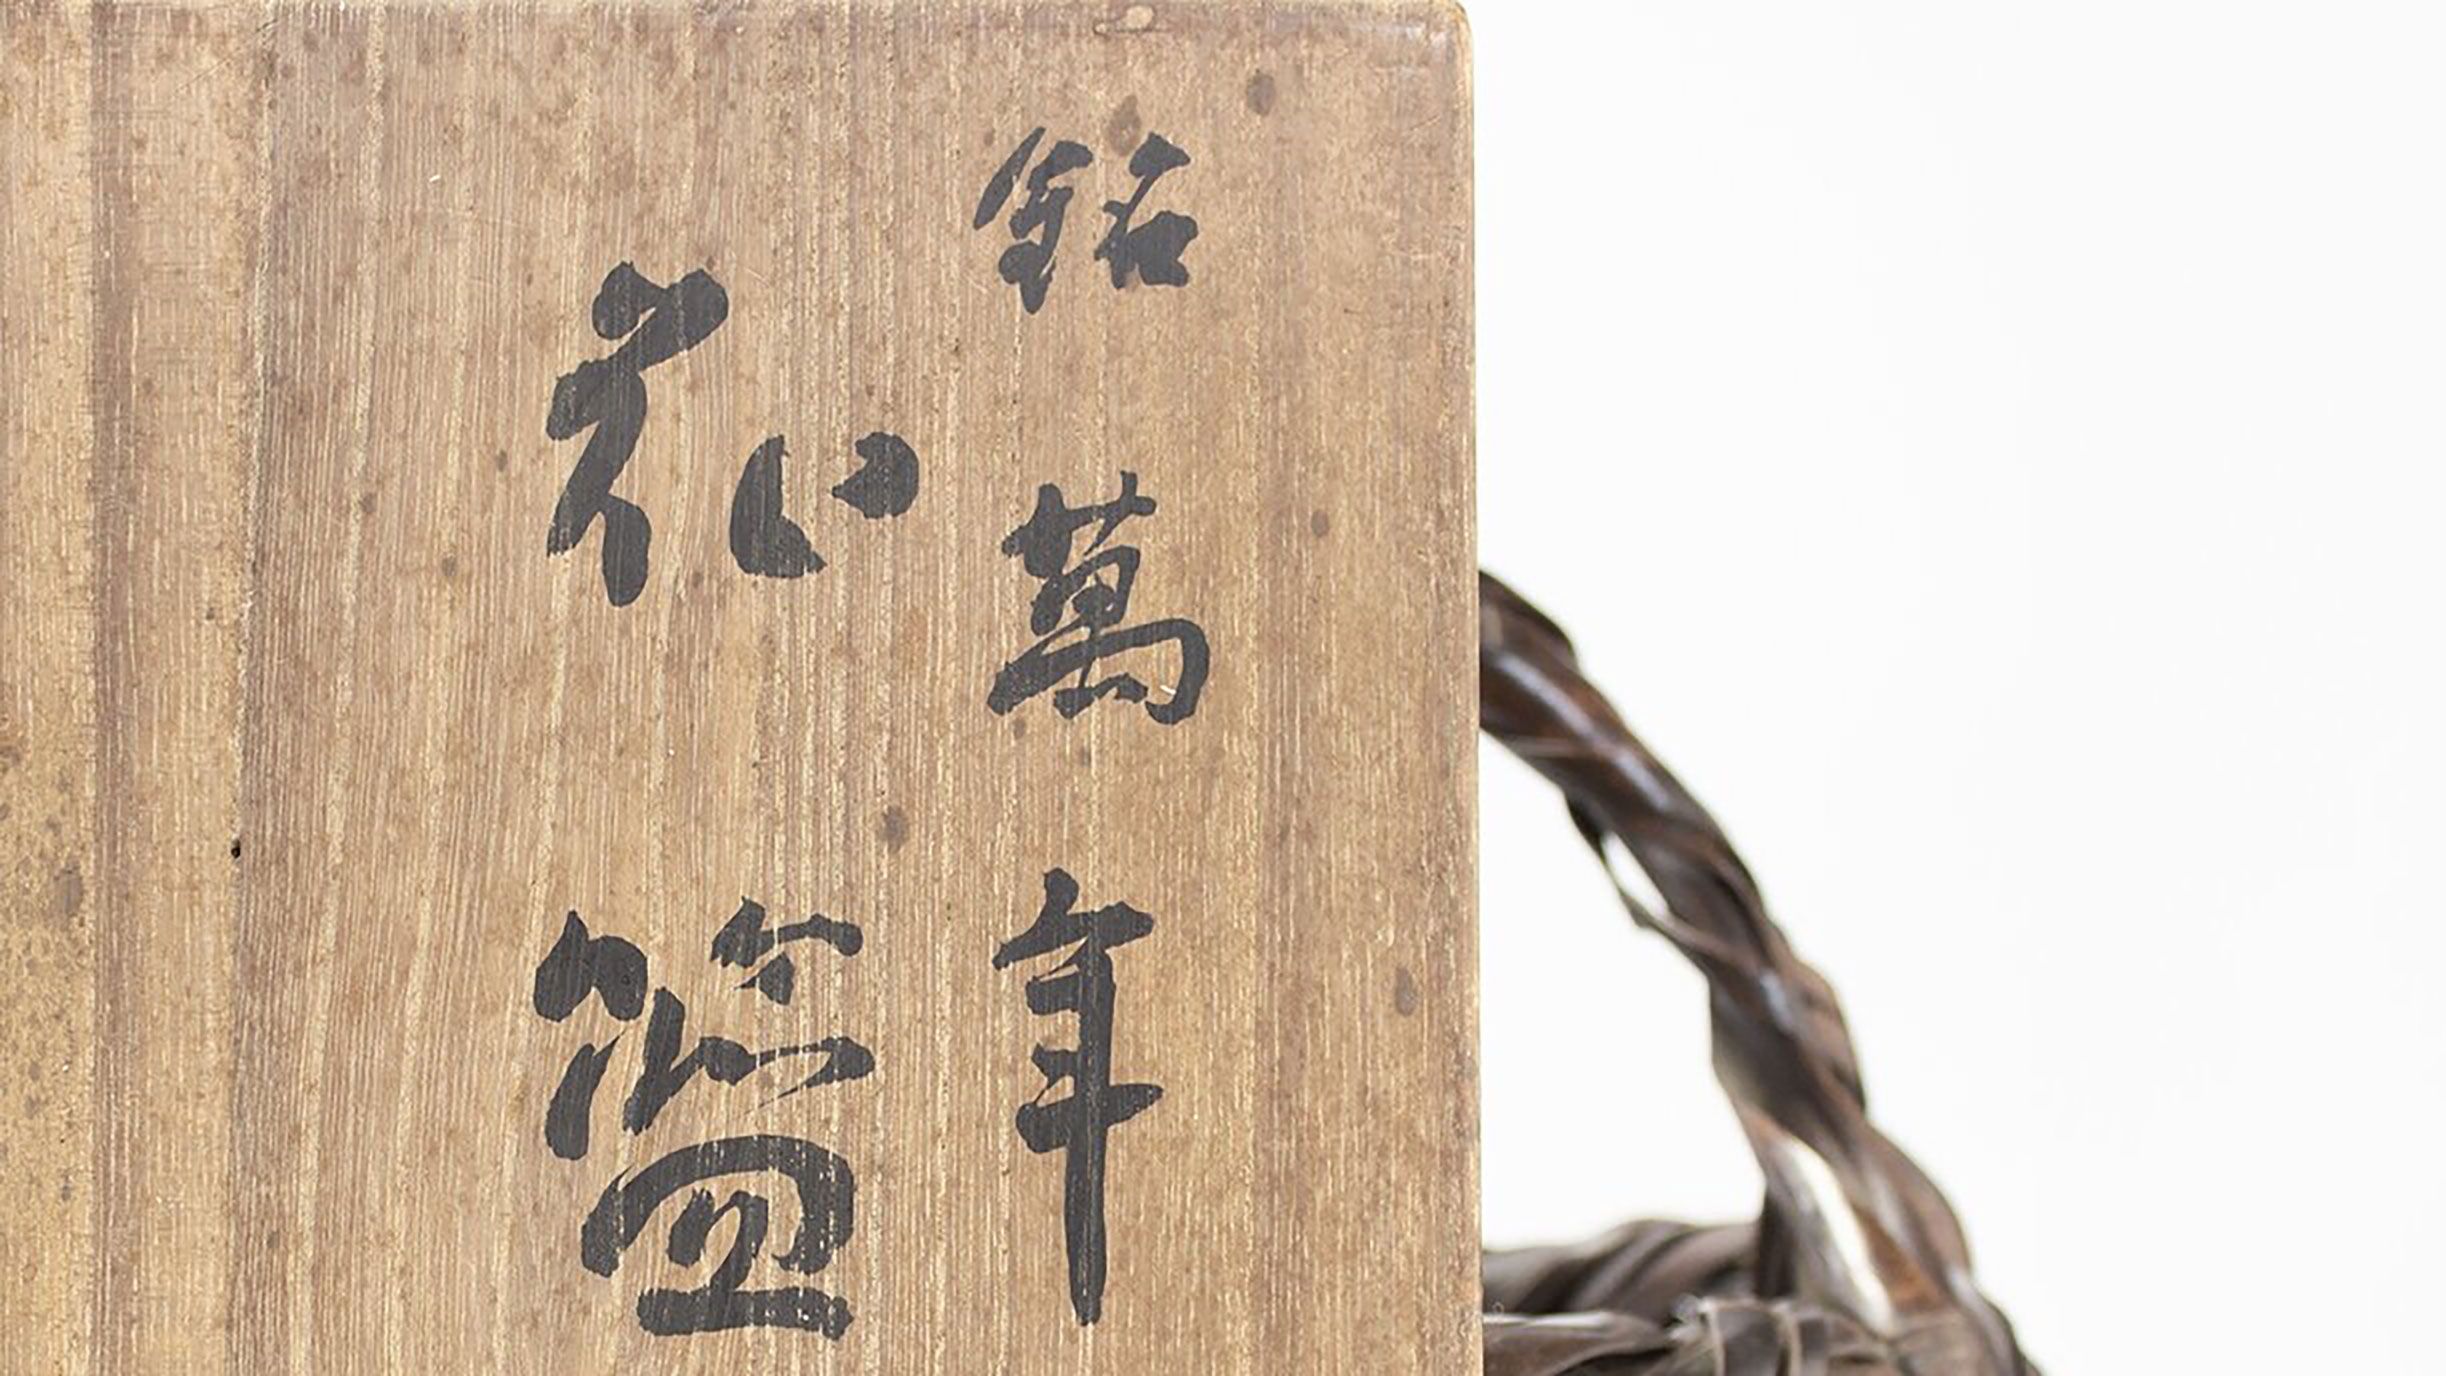 銘萬年
花籃